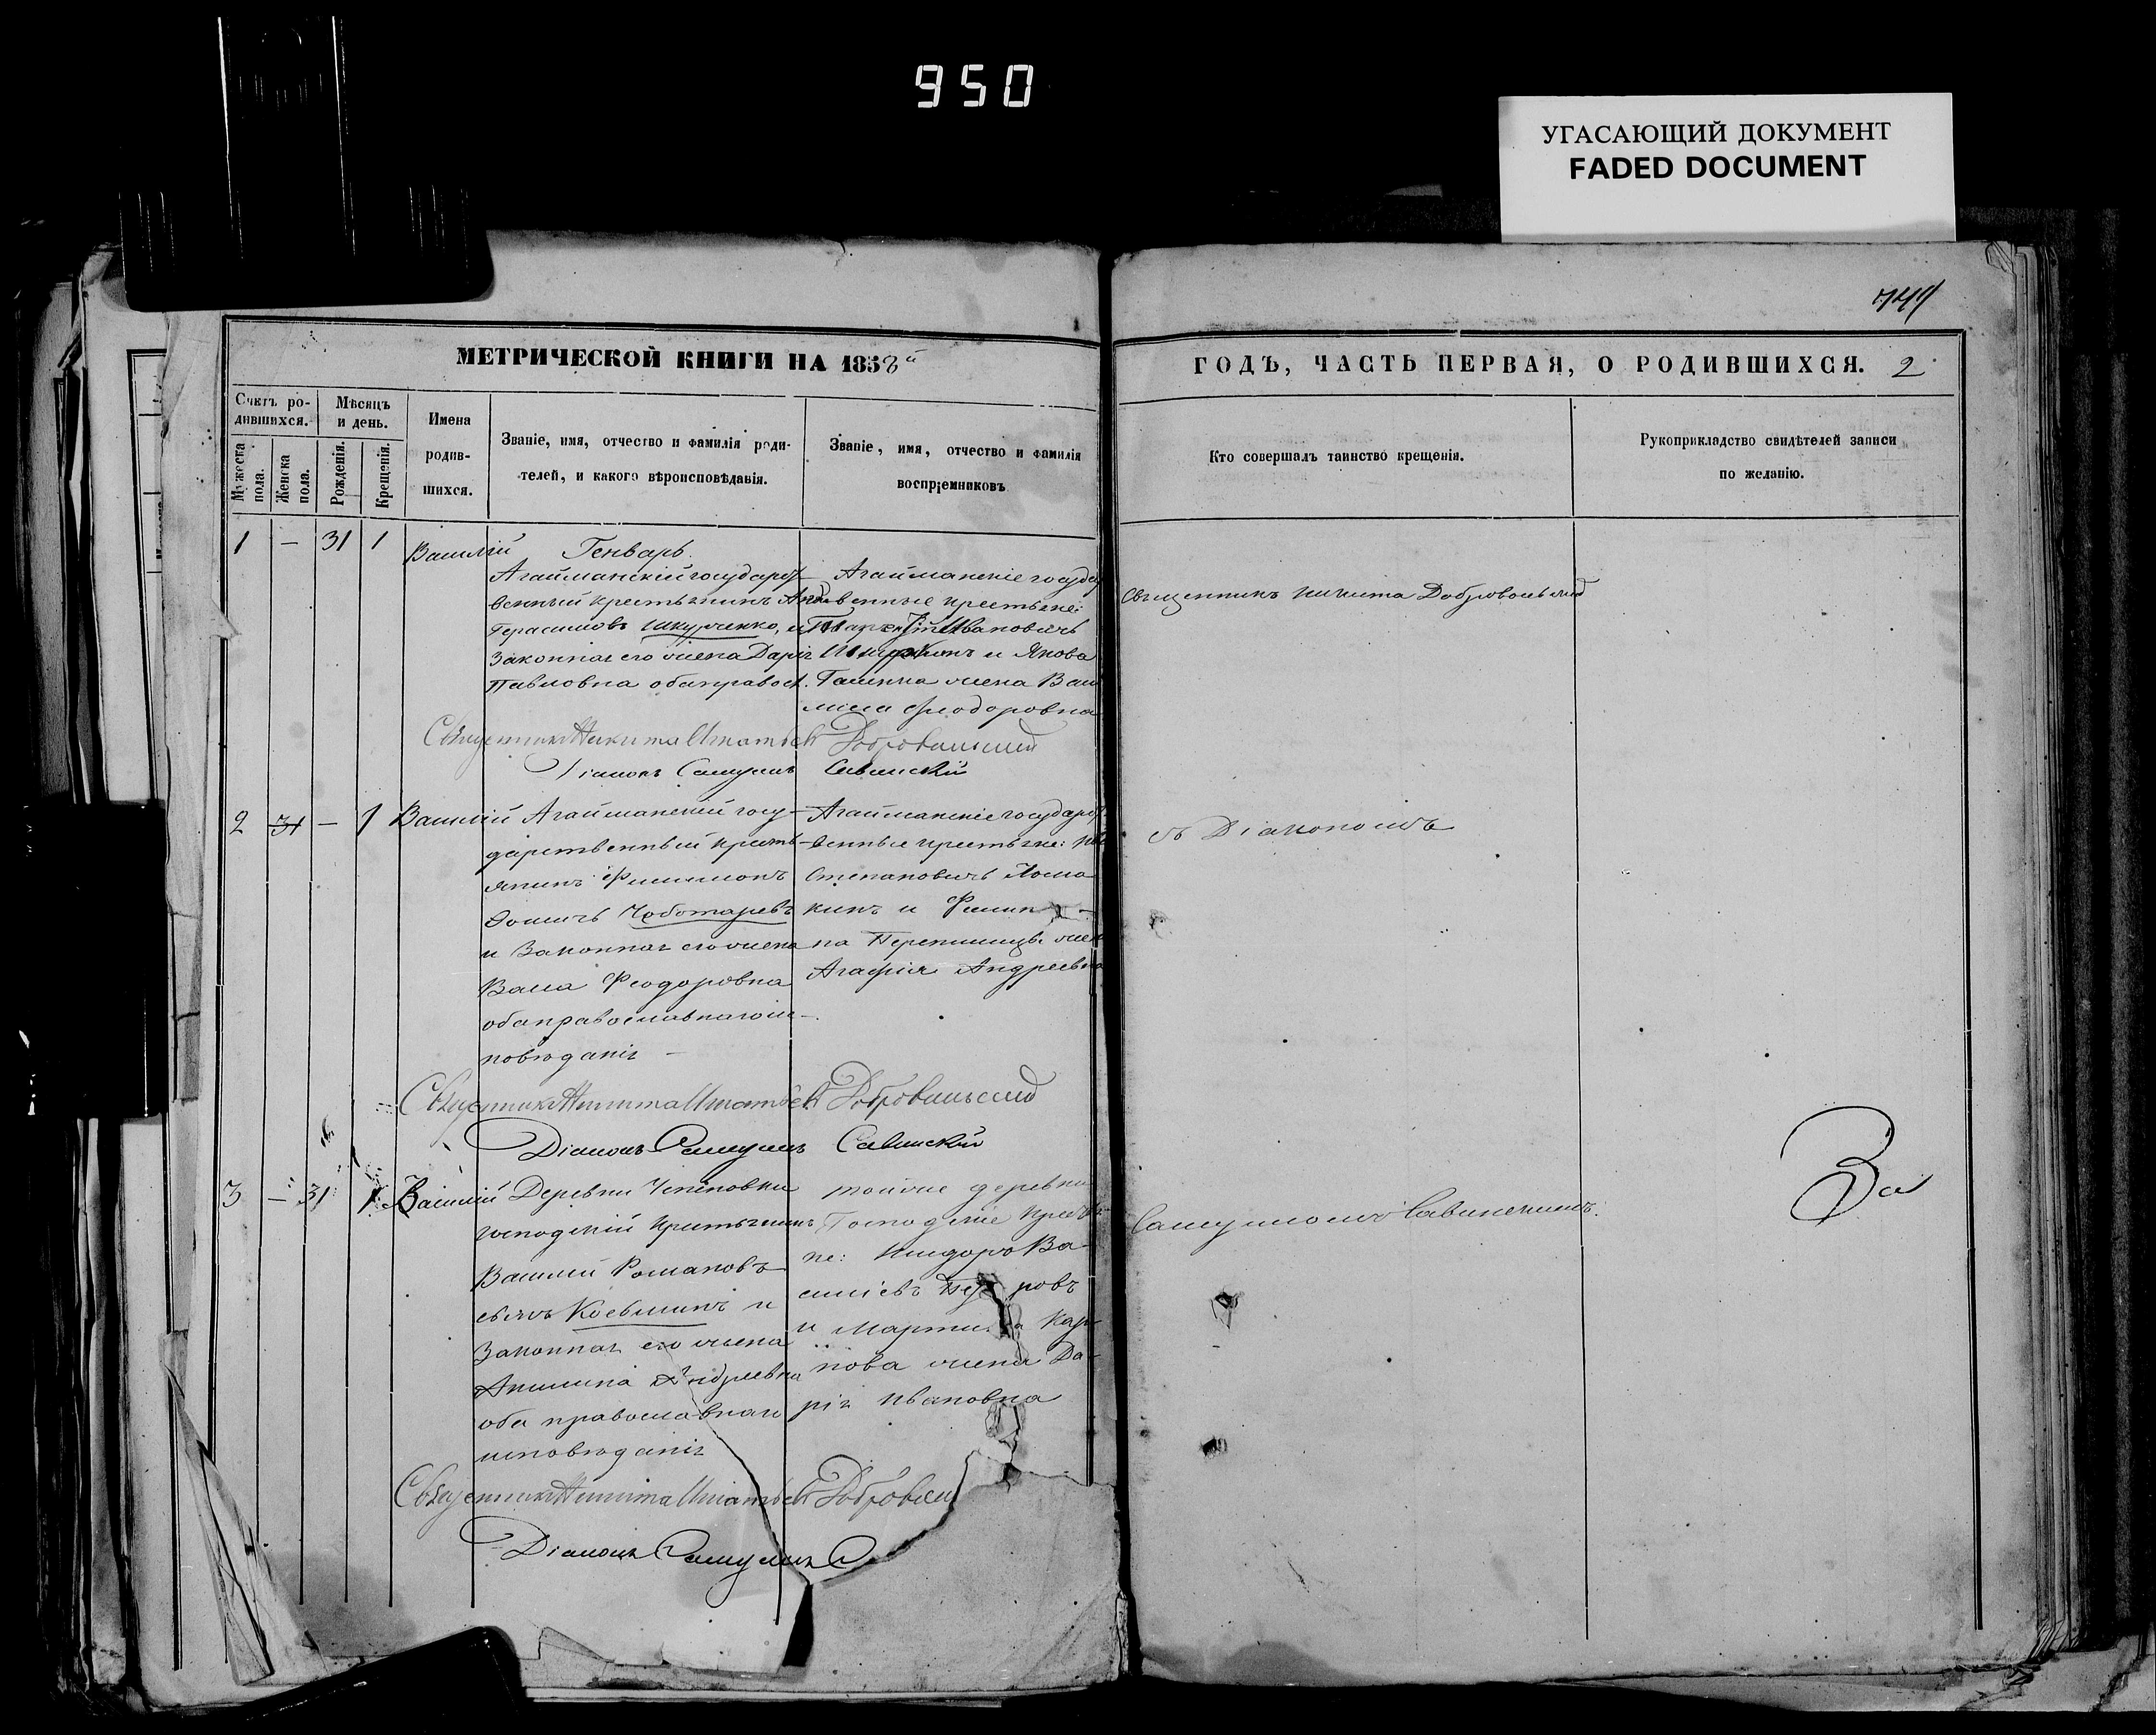 950
УГАСАЮЩИЙ ДОКУМЕНТ
FADED DOCUMENT
МЕТРИЧЕСКОЙ КНИГИ НА 1858й
ГОДЪ, ЧАСТЬ ПЕРВАЯ, О РОДИВШИХСЯ. 2
Счетъ ро-
дившихся.
Мужеска
пола.
Женска
пола.
Мѣсяцъ
и день.
Рожденія.
Крещенія.
Имена
родив-
шихся.
Званіе, имя, отчество и фамилія роди-
телей, и какого вѣроисповѣданія.
Званіе, имя, отчество и фамилія
воспріемниковъ
Кто совершалъ таинство крещенія.
Рукоприкладство свидѣтелей записи
по желанію.
1 — 31 1 Василій
Генварь.
Агайманскій государст-
венный крестьянинъ
Герасимовъ
законная его жена Дарія
Павловна оба правосл.
Агайманскіе госуда
венные крестьяне:
Ивановичъ
и Якова
жена Васи
лиса Феодоровна
Священникъ Никита Добровольскій
Священникъ Никита Игнатьевъ Добровольскій
Діаконъ Самуилъ Савинскій
2 31 — 1 Василій
Агайманскій госу-
дарственный кресть-
янинъ Филимонъ
Фомичъ Чоботаревъ
и законная его жена
Васса Феодоровна
оба православнаго ис-
повѣданія —
Агайманскіе государст
венные крестьяне:
Степановичъ Лома
кинъ и Филип
па жен
Агафія Андреевна
съ Діакономъ
Священникъ Никита Игнатьевъ Добровольскій
Діаконъ Самуилъ Савинскій
3 — 31 1 Василій
Деревни
господскій крестьянинъ
Василій Романовъ
сынъ и
законная его жена
Акилина Андреевна
оба православнаго
исповѣданія
тойже деревни
Господскіе кресть
не: Исидоръ Ва-
силіевъ
и Мартина Кар
пова жена Да-
рія Ивановна
Самуиломъ Савинскимъ.
За
Священникъ Никита Игнатьевъ Добровол
Діаконъ Самуилъ С